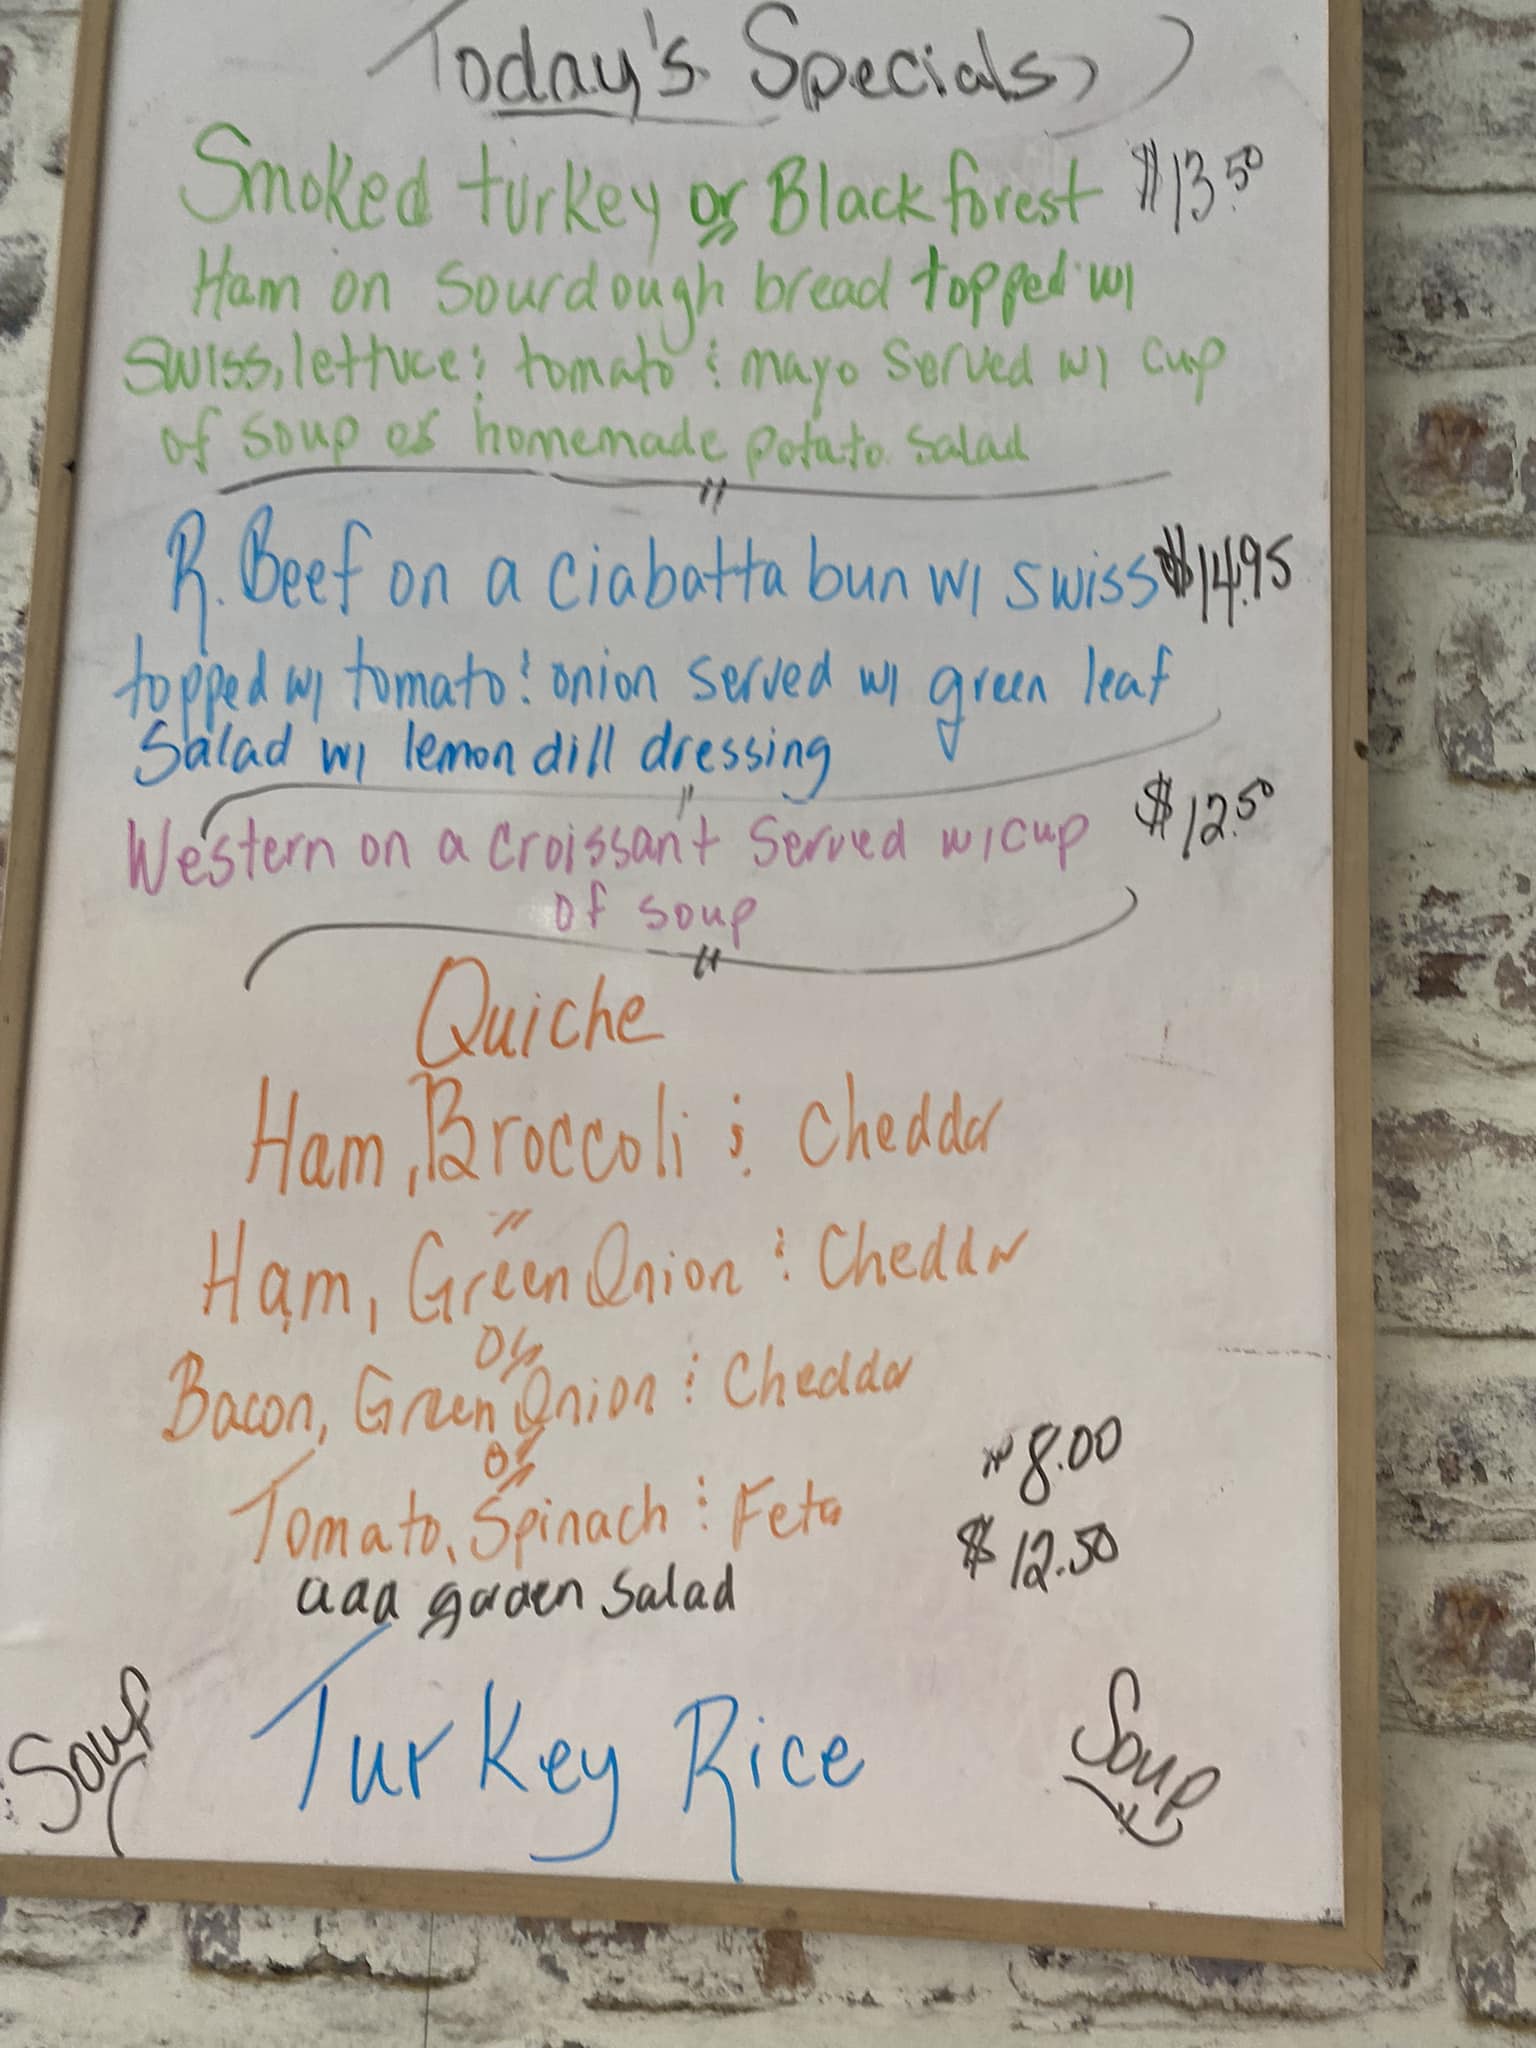 Today's Specials
Smoked turkey or Black forest $13.50
Ham on sourdough bread topped w/
swiss, lettuce & tomato & mayo served w/ cup
of soup or homemade potato salad
R. Beef on a ciabatta bun w/ swiss $14.95
topped w/ tomato & onion served w/ green leaf
Salad w/ lemon dill dressing
Western on a croissant served w/ cup $12.50
of soup
Quiche
Ham, Broccoli & Cheddar
Ham, Green Onion & Cheddar
or
Bacon, Green Onion & Cheddar
or
Tomato, Spinach & Feta 8.00
add garden salad $12.50
Soup Turkey Rice Soup